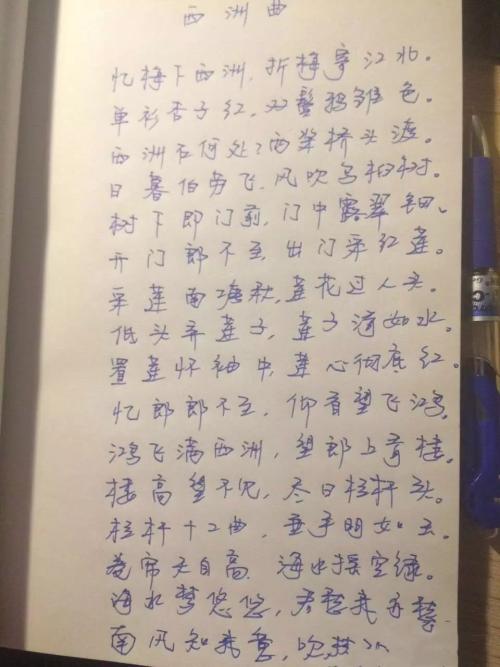 西洲曲
忆梅下西洲,折梅寄江北。
单衫杏子红,双鬓鸦雏色。
西洲在何处?西桨桥头渡。
日暮伯劳飞,风吹乌桕树。
树下即门前,门中露翠钿。
开门郎不至,出门采红莲。
采莲南塘秋,莲花过人头。
低头弄莲子,莲子清如水。
置莲怀袖中,莲心彻底红。
忆郎郎不至,仰首望飞鸿。
鸿飞满西洲,望郎上青楼。
楼高望不见,尽日栏杆头。
栏杆十二曲,垂手明如玉。
卷帘天自高,海水摇空绿。
海水梦悠悠,君愁我亦愁
南风知我意,吹梦